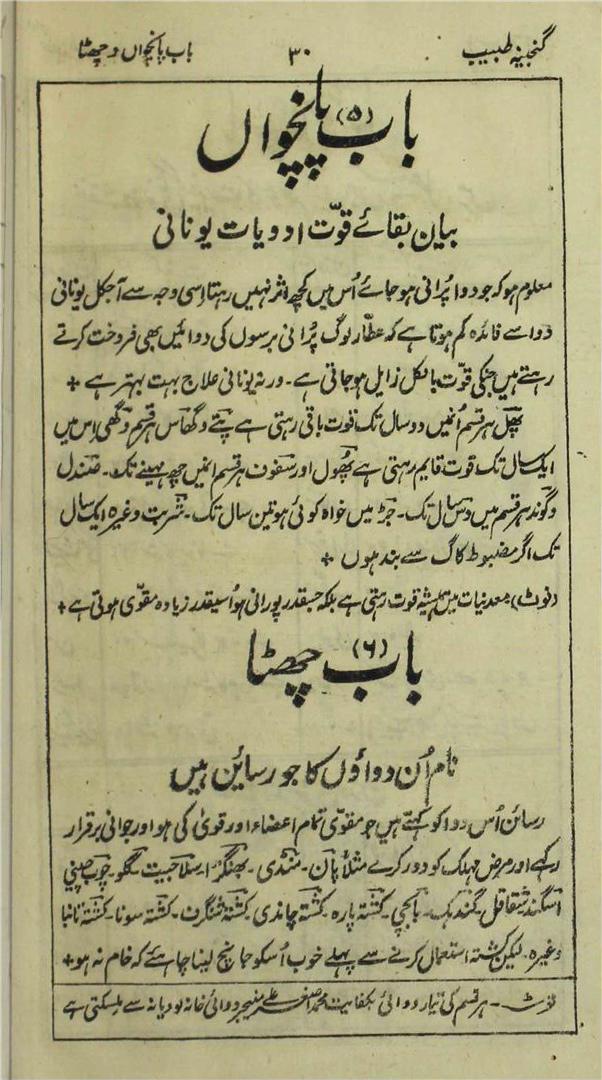 گنجینہ طبیب ۳۰ باب پانچواں و چھٹا
باب (۵) پانچواں
بیان بقائے قوّت ادویات یونانی
معلوم ہو کہ جو دوا پُرانی ہو جائے اُس میں کچھ اثر نہیں رہتا اِسی وجہ سے آجکل یونانی
دوا سے فائدہ کم ہوتا ہے کہ عطّار لوگ پُرانی برسوں کی دوائیں بھی فروخت کرتے
رہتے ہیں جنکی قوّت بالکل زایل ہو جاتی ہے۔ ورنہ یونانی علاج بہت بہتر ہے +
پھل ہر قسم اُنمیں دو سال تک قوت باقی رہتی ہے پتے و گھاس ہر قسم و گھی اِس میں
ایک سال تک قوت قایم رہتی ہے پھُول اور سفوف ہر قسم انمیں چھ مہینے تک۔ صندل
و گوند ہر قسم میں دس سال تک۔ جڑ میں خواہ کوئی ہو تین سال تک۔ شربت وغیرہ ایک سال
تک اگر مضبوط کاگ سے بند ہوں +
(نوٹ) معدنیات میں ہمیشہ قوت رہتی ہے بلکہ جسقدر پورانی ہو اُسیقدر زیادہ مقوّی ہوتی ہے +
باب (۶) چھٹا
نام اُن دواؤں کا جو رساین ہیں
رسائن اُس دوا کو کہتے ہیں جو مقوّی تمام اعضاء اور قویٰ کی ہو اور جوانی برقرار
رکھے اور مرض مہلک کو دور کرے مثلاً پان۔ منڈی۔ بھنگرا۔ سلاجیت۔ گلو۔ چوب چینی
اسگند شقاقل۔ گندھک۔ بابچی۔ کشتہ پارہ۔ کشتہ چاندی۔ کشتہ شنگرف۔ کشتہ سونا۔ کشتہ تانبا
وغیرہ۔ لیکن کشتہ استعمال کرنے سے پہلے خوب اُسکو جانچ لینا چاہئے کہ خام نہ ہو +
نوٹ۔ ہر قسم کی تیار دوائی بکفایت محمد اصغر علی منیجر دوائی خانہ لودیانہ سے ملسکتی ہے